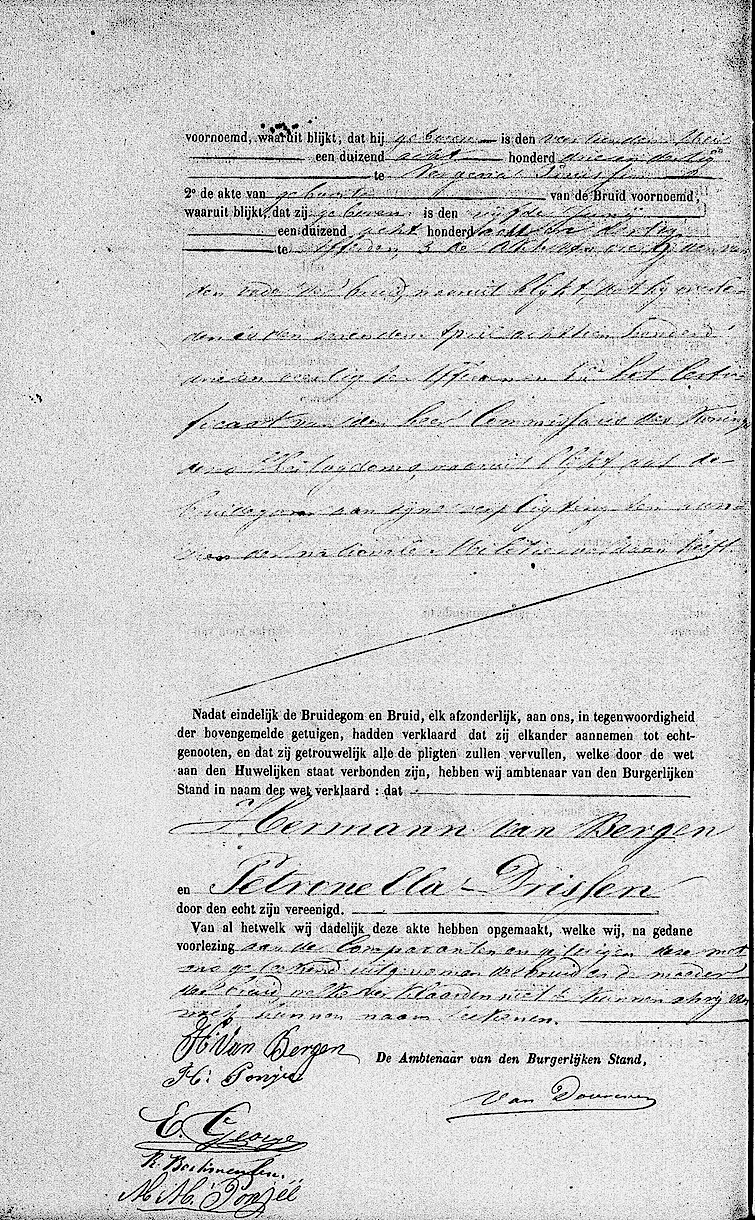 voornoemd, waaruit blijkt, dat hij geboren is den veertienden Mei
een duizend acht honderd drie en dertig
te
2° de akte van geboorte van de Bruid voornoemd,
waaruit blijkt, dat zij geboren is den vijfde Junij
een duizend acht honderd acht en dertig
te Afferden, 3 de akte van overlijden van
den vader der bruid, waaruit blijkt, dat hij overle-
den is den April achttien honderd
en veertig te Afferden het Certi-
ficaat van den heer Commissaris des Konings
Hertogdoms, waaruit blijkt dat de
bruidegom aan zijne verpligting ten aan-
zien der nationale Militie voldaan heeft.
Nadat eindelijk de Bruidegom en Bruid, elk afzonderlijk, aan ons, in tegenwoordigheid
der bovengemelde getuigen, hadden verklaard dat zij elkander aannemen tot echt-
genooten, en dat zij getrouwelijk alle de pligten zullen vervullen, welke door de wet
aan den Huwelijken staat verbonden zijn, hebben wij ambtenaar van den Burgerlijken
Stand in naam der wet verklaard : dat
Hermann van Bergen
en Petronella Drissen
door den echt zijn vereenigd.
Van al hetwelk wij dadelijk deze akte hebben opgemaakt, welke wij, na gedane
voorlezing aan de Comparanten en getuigen deze met
ons geteekend uitgenomen de bruid en de moeder
der bruid welke verklaarden niet te kunnen schrijven
kunnen naam teekenen.
H. Van Bergen
De Ambtenaar van den Burgerlijken Stand,
H. Ponjee
Van Douveren
E. George
M. M. Ponjeé